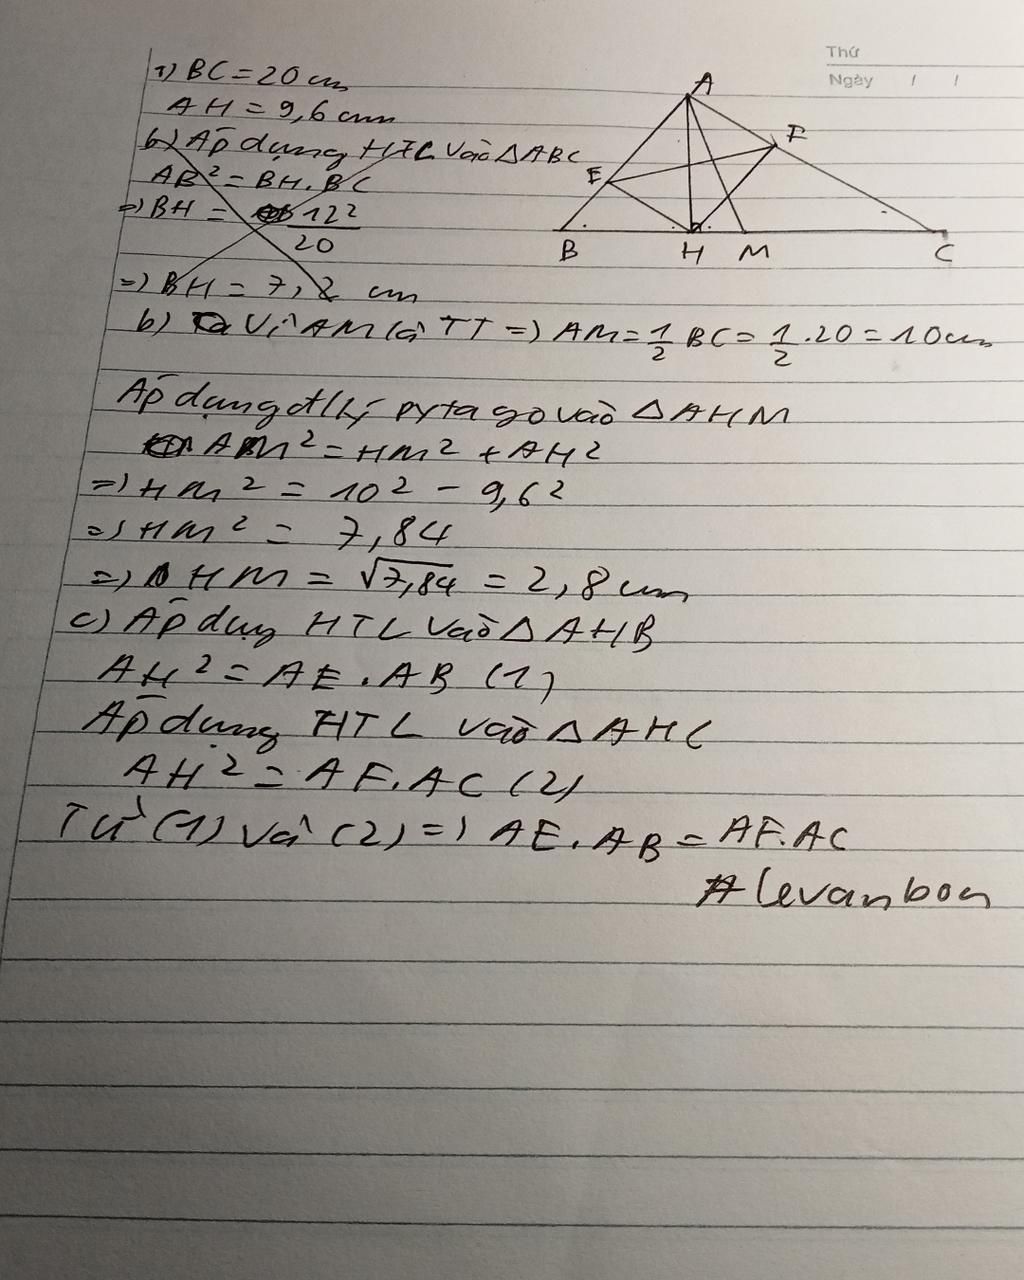 Thứ
Ngày / /
1) BC = 20 cm
AH = 9,6 cm
b) Áp dụng HTL vào △ABC
AB² = BH. BC
=) BH = 12²
20
=) BH = 7,2 cm
b) Vì AM là TT =) AM = 1/2 BC = 1/2 .20 = 10 cm
Áp dụng đ/lý pytago vào △AHM
AM² = HM² + AH²
=) HM² = 10² - 9,6²
=) HM² = 7,84
=) HM = √7,84 = 2,8 cm
c) Áp dụng HTL vào △AHB
AH² = AE. AB (1)
Áp dụng HTL vào △AHC
AH² = AF. AC (2)
Từ (1) và (2) =) AE. AB = AF. AC
# levanboa
A
F
E
B H M C